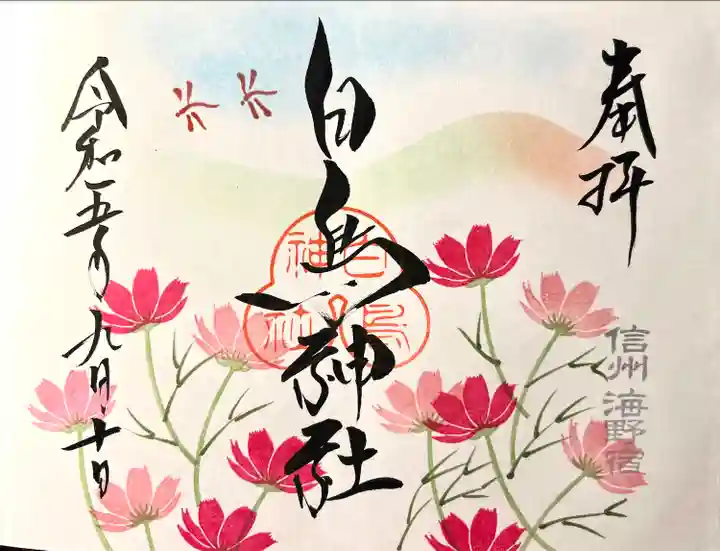 奉拝
信州 海野宿
白鳥神社
白鳥神社
令和五年九月十日